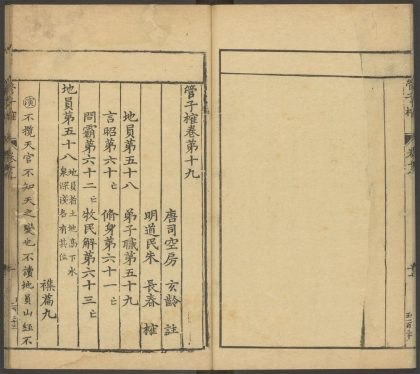 管子榷卷第十九
唐司空房 玄齡 註
明道民朱 長春 榷
地員第五十八 弟子職第五十九
言昭第六十亡 脩身第六十一亡
問霸第六十二亡 牧民解第六十三亡
襍篇九
地員第五十八 地員者土地高下水泉深淺各有其位
不攬天官不知天之變也不讀地員山經不
管子榷